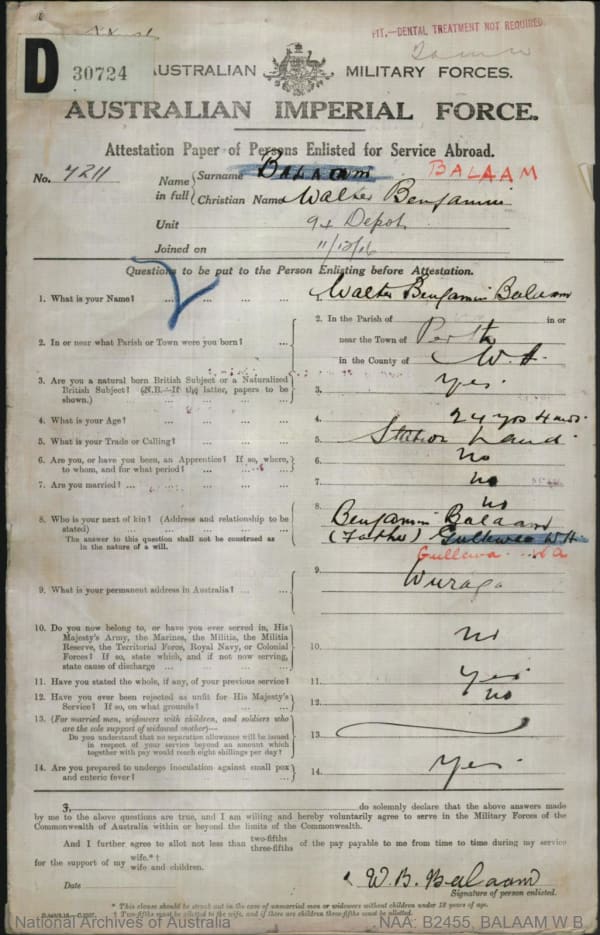 FIT.—DENTAL TREATMENT NOT REQUIRED
D 30724
AUSTRALIAN MILITARY FORCES.
AUSTRALIAN IMPERIAL FORCE.
Attestation Paper of Persons Enlisted for Service Abroad.
No. 4211
Name in full { Surname BALAAM BALAAM
Christian Name Walter Benjamin
Unit 94 Depot
Joined on 11/12/16
Questions to be put to the Person Enlisting before Attestation.
1. What is your Name? ... ... ... ... Walter Benjamin Balaam
2. In or near what Parish or Town were you born? ... ...
2. In the Parish of in or
near the Town of Perth
in the County of W.A.
3. Are you a natural born British Subject or a Naturalized
British Subject? (N.B.—If the latter, papers to be
shown.) ... ... ... ...
3. Yes.
4. What is your Age? ... ... ... 4. 24 yrs 4 mos.
5. What is your Trade or Calling? ... ... ... 5. Station hand.
6. Are you, or have you been, an Apprentice? If so, where,
to whom, and for what period? ... ... ...
6. no
7. Are you married? ... ... ... ... 7. no
8. no
8. Who is your next of kin? (Address and relationship to be
stated) ... ... ... ...
The answer to this question shall not be construed as
in the nature of a will.
Benjamin Balaam
(Father) Gullewa W.A.
Gullewa. WA
9. What is your permanent address in Australia? ... ... 9. Wuraga
10. Do you now belong to, or have you ever served in, His
Majesty's Army, the Marines, the Militia, the Militia
Reserve, the Territorial Force, Royal Navy, or Colonial
Forces? If so, state which, and if not now serving,
state cause of discharge ... ... ...
10. no
11. Have you stated the whole, if any, of your previous service? 11. Yes
12. Have you ever been rejected as unfit for His Majesty's
Service? If so, on what grounds? ... ...
12. no
13. (For married men, widowers with children, and soldiers who
are the sole support of widowed mother)—
Do you understand that no separation allowance will be issued
in respect of your service beyond an amount which
together with pay would reach eight shillings per day?
13.
14. Are you prepared to undergo inoculation against small pox
and enteric fever? ... ... ...
14. Yes.
I, do solemnly declare that the above answers made
by me to the above questions are true, and I am willing and hereby voluntarily agree to serve in the Military Forces of the
Commonwealth of Australia within or beyond the limits of the Commonwealth.
And I further agree to allot not less than two-fifths three-fifths of the pay payable to me from time to time during my service
for the support of my wife.*† wife and children.
Date
W. B. Balaam
Signature of person enlisted.
* This clause should be struck out in the case of unmarried men or widowers without children under 18 years of age.
† Two-fifths must be allotted to the wife, and if there are children three-fifths must be allotted.
National Archives of Australia NAA: B2455, BALAAM W B